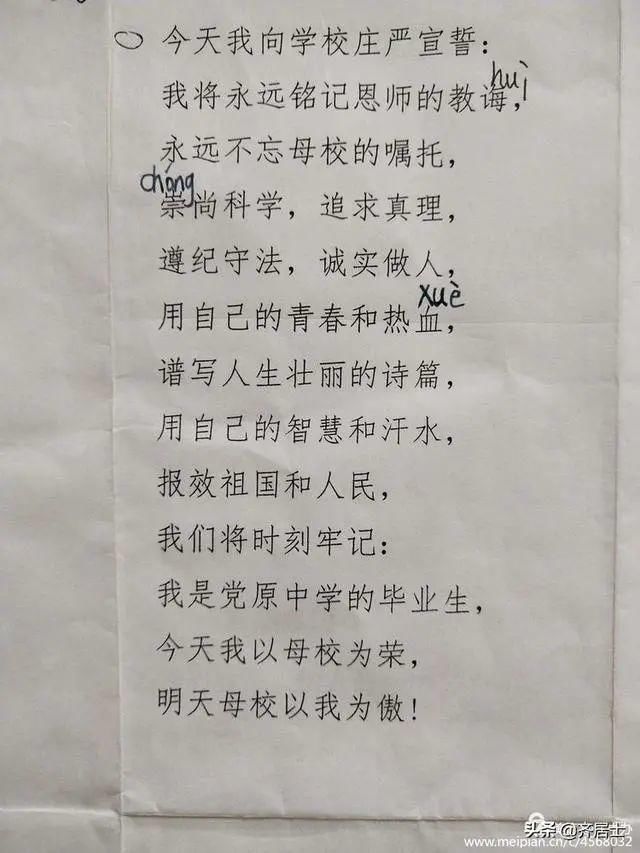 今天我向学校庄严宣誓：
huì
我将永远铭记恩师的教诲，
永远不忘母校的嘱托，
chóng
崇尚科学，追求真理，
遵纪守法，诚实做人，
xuè
用自己的青春和热血，
谱写人生壮丽的诗篇，
用自己的智慧和汗水，
报效祖国和人民，
我们将时刻牢记：
我是党原中学的毕业生，
今天我以母校为荣，
明天母校以我为傲！
头条 @齐居士
www.meipian.cn/c/4568032